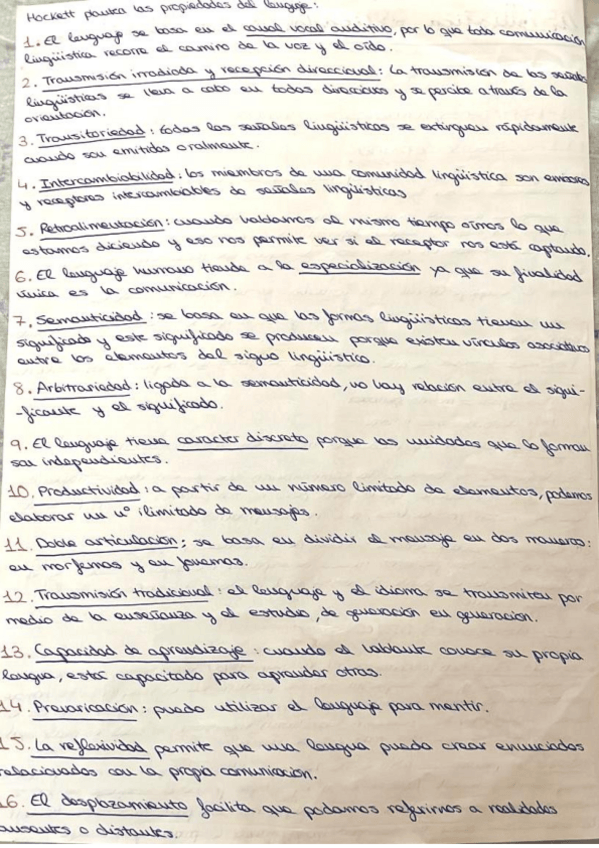 Hockett pautea las propiedades del lenguaje:
1. El lenguaje se basa en el canal vocal auditivo, por lo que toda comunicación
lingüística recorre el camino de la voz y el oído.
2. Transmisión irradiada y recepción direccional: la transmisión de las señales
lingüísticas se lleva a cabo en todas direcciones y se percibe a través de la
orientación.
3. Transitoriedad: todas las señales lingüísticas se extinguen rápidamente
cuando son emitidas oralmente.
4. Intercambiabilidad: los miembros de una comunidad lingüística son emisores
y receptores intercambiables de señales lingüísticas
5. Retroalimentación: cuando hablamos al mismo tiempo oímos lo que
estamos diciendo y eso nos permite ver si el receptor nos está captando.
6. El lenguaje humano tiende a la especialización ya que su finalidad
única es la comunicación.
7. Semanticidad: se basa en que las formas lingüísticas tienen un
significado y este significado se producen porque existen vínculos asociativos
entre los elementos del signo lingüístico.
8. Arbitrariedad: ligada a la semanticidad, no hay relación entre el signi-
-ficante y el significado.
9. El lenguaje tiene caracter discreto porque las unidades que lo forman
son independientes.
10. Productividad: a partir de un número limitado de elementos, podemos
elaborar un nº ilimitado de mensajes.
11. Doble articulación: se basa en dividir el mensaje en dos maneras:
en morfemas y en fonemas.
12. Transmisión tradicional: el lenguaje y el idioma se transmiten por
medio de la enseñanza y el estudio, de generación en generación.
13. Capacidad de aprendizaje: cuando el hablante conoce su propia
lengua, está capacitado para aprender otras.
14. Prevaricación: puedo utilizar el lenguaje para mentir.
15. La reflexividad permite que una lengua pueda crear enunciados
relacionados con la propia comunicación.
16. El desplazamiento facilita que podamos referirnos a realidades
ausentes o distantes.